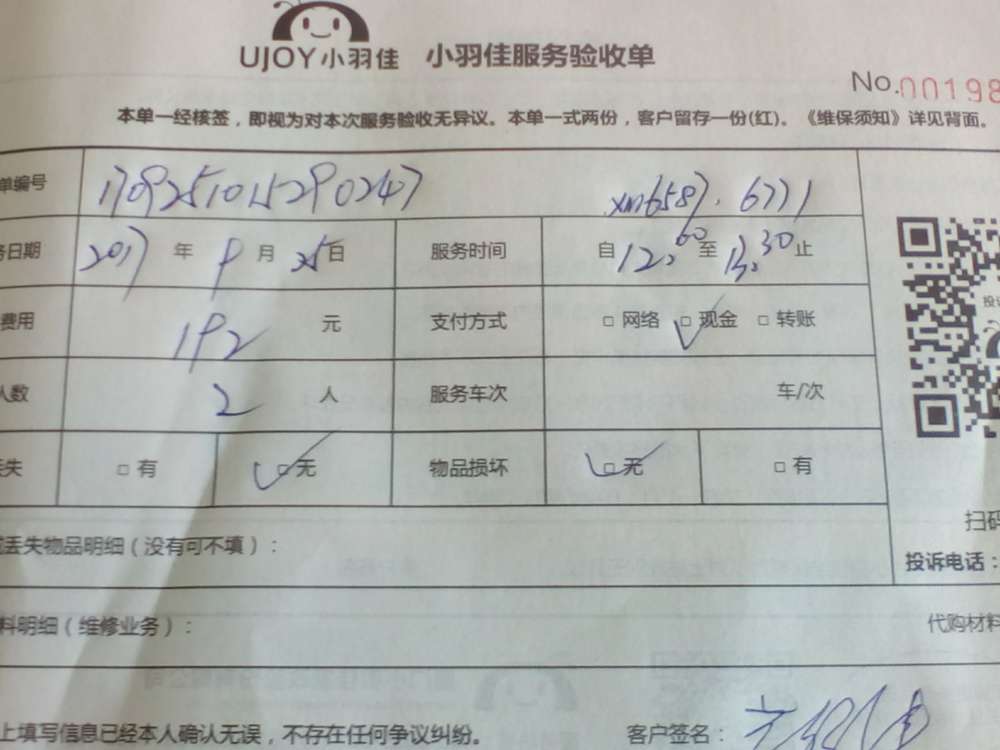 UJOY小羽佳 小羽佳服务验收单
No.00198
本单一经核签，即视为对本次服务验收无异议。本单一式两份，客户留存一份(红)。《维保须知》详见背面。
单编号 1709251015290247 xm6587. 6771
务日期 2017 年 9 月 25 日 服务时间 自 12.00 至 13.30 止
费用 192 元 支付方式 □ 网络 □ 现金 □ 转账
人数 2 人 服务车次 车/次
丢失 □ 有 □ 无 物品损坏 □ 无 □ 有
丢失物品明细（没有可不填）：
扫码
投诉电话：
料明细（维修业务）： 代购材料
上填写信息已经本人确认无误，不存在任何争议纠纷。 客户签名：